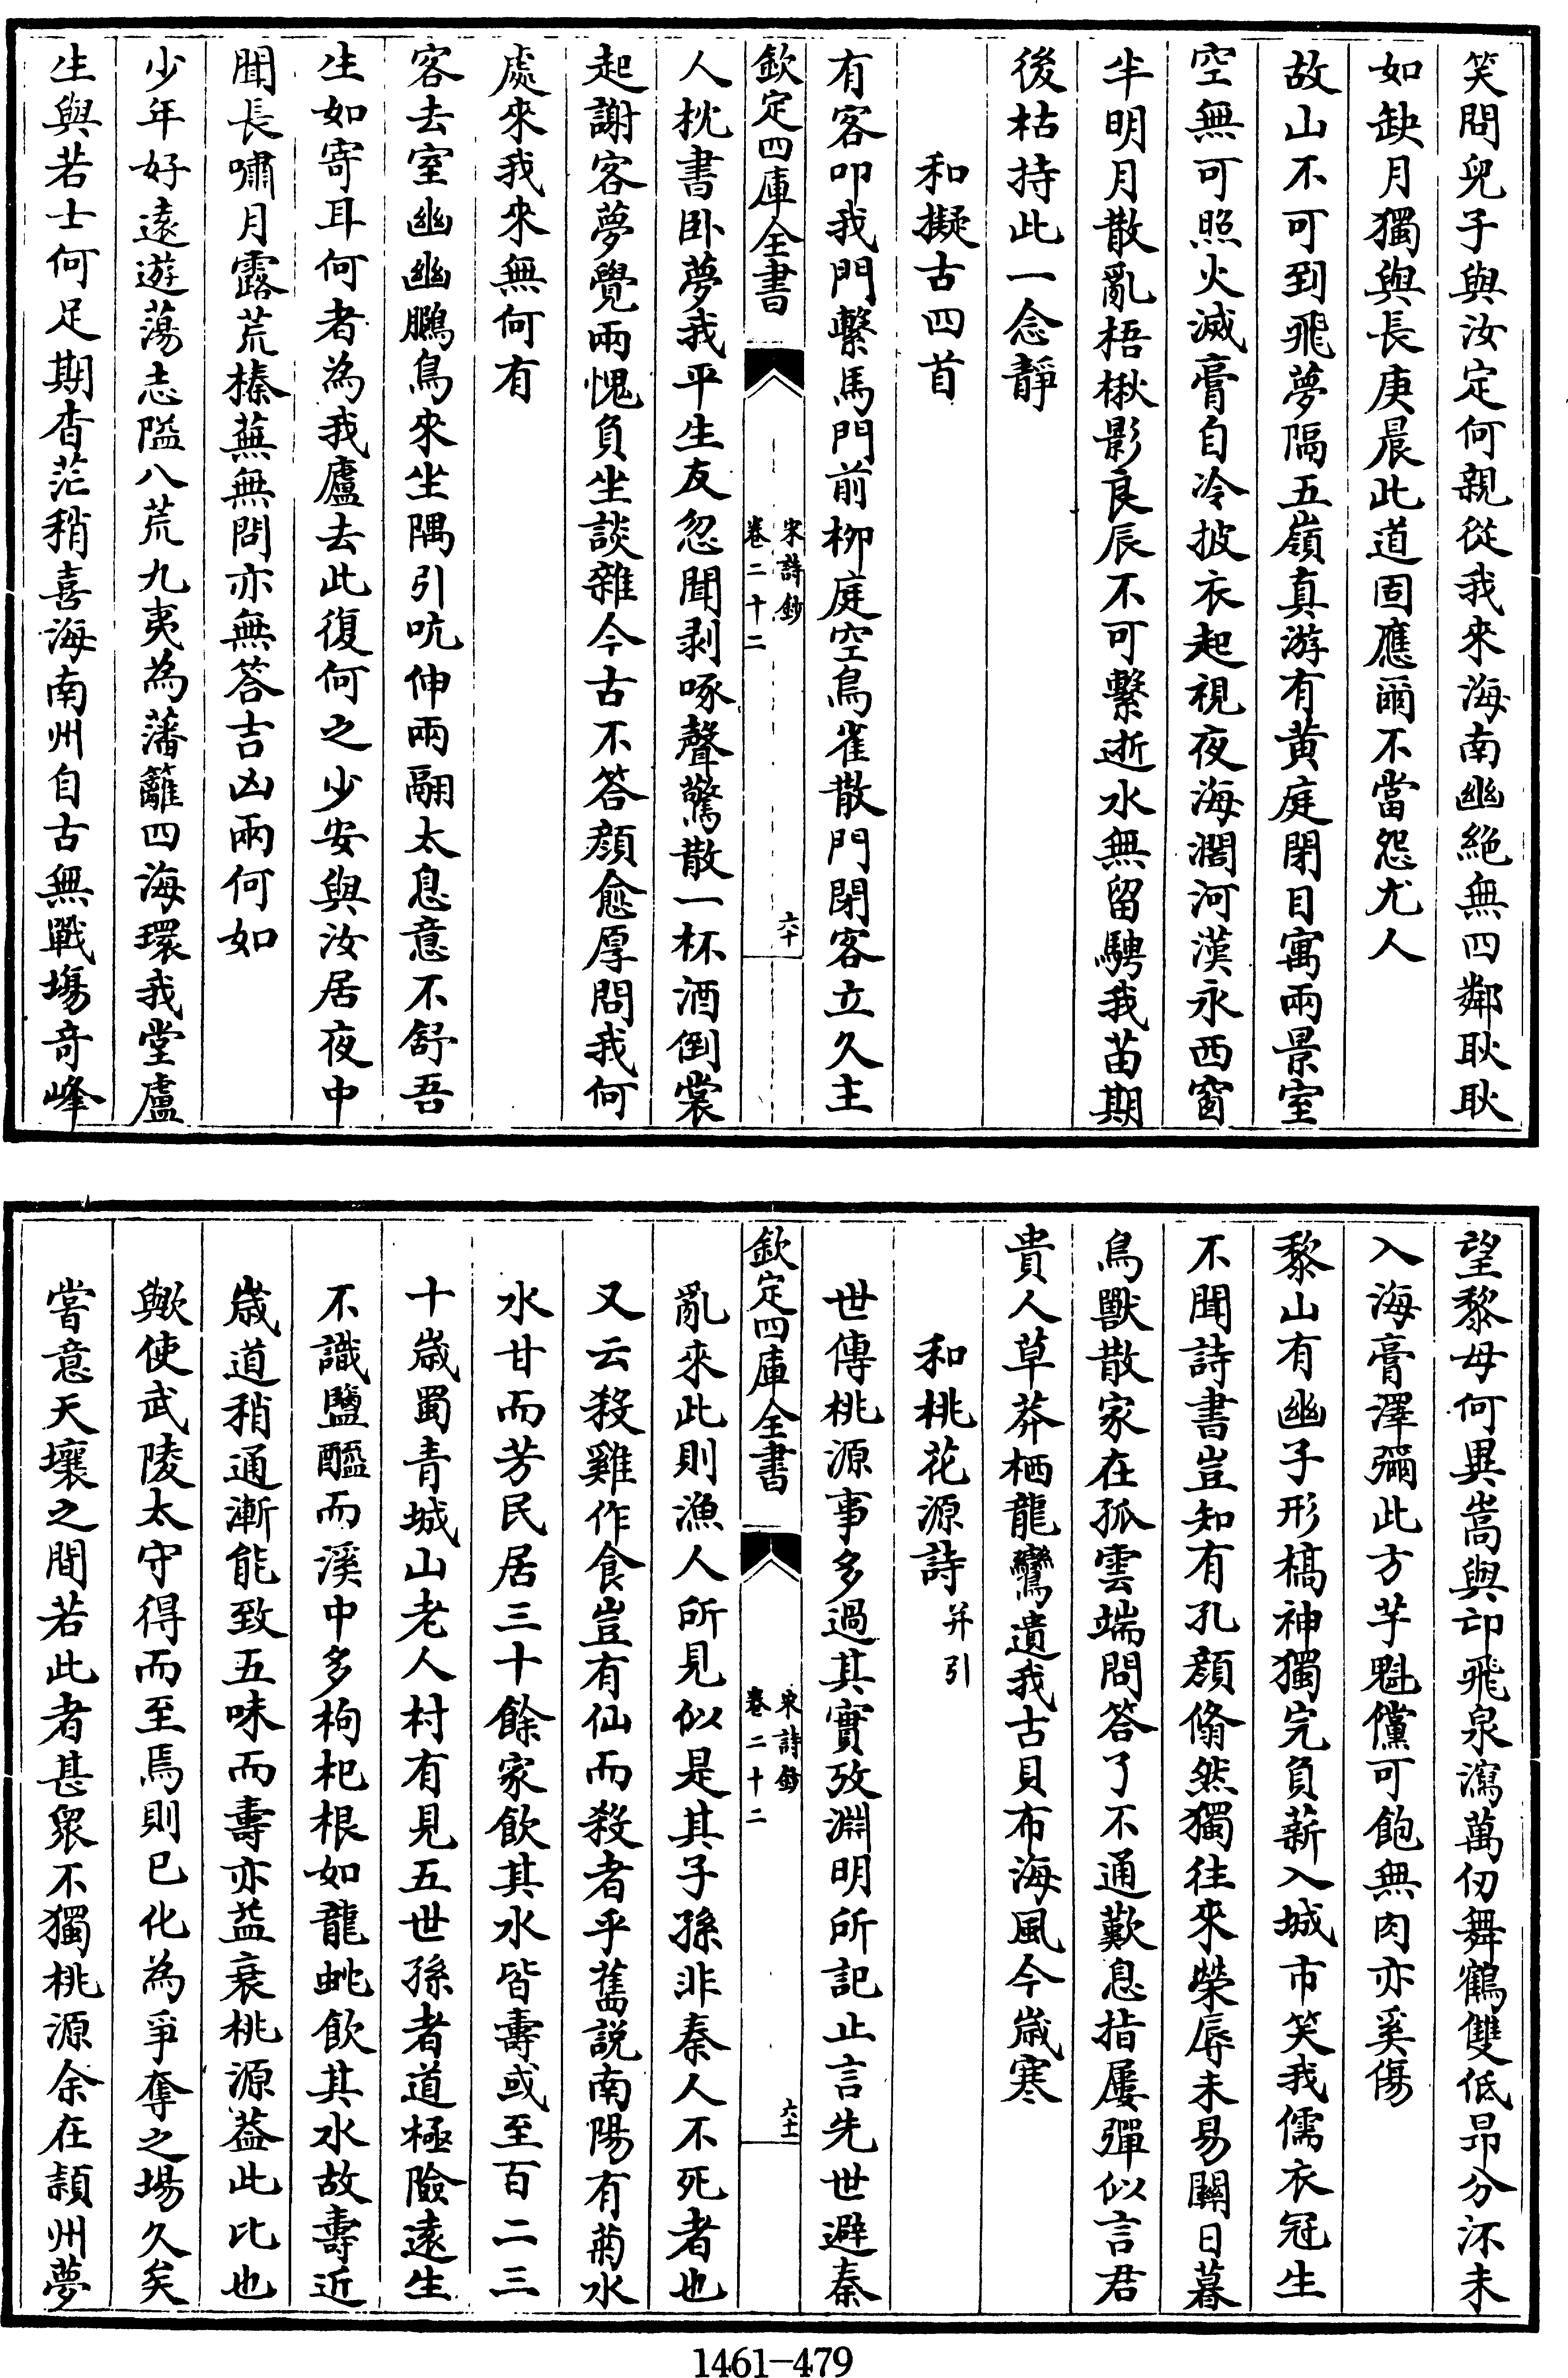 笑問兒子與汝定何親從我來海南幽絶無四鄰耿耿
如缺月獨與長庚晨此道固應爾不當怨尤人
故山不可到飛夢隔五嶺真游有黄庭閉目寓兩景室
空無可照火滅膏自冷披衣起視夜海濶河漢永西窗
半明月散亂梧楸影良辰不可繫逝水無留騁我苗期
後枯持此一念靜
和擬古四首
有客叩我門繫馬門前柳庭空鳥雀散門閉客立久主
欽定四庫全書
宋詩鈔
卷二十二
六十
人枕書卧夢我平生友忽聞剥啄聲驚散一杯酒倒裳
起謝客夢覺兩愧負坐談雜今古不答顔愈厚問我何
處來我來無何有
客去室幽幽鵩鳥來坐隅引吭伸兩翮太息意不舒吾
生如寄耳何者為我廬去此復何之少安與汝居夜中
聞長嘯月露荒榛蕪無問亦無答吉凶兩何如
少年好遠遊蕩志隘八荒九夷為藩籬四海環我堂盧
生與若士何足期杳茫稍喜海南州自古無戰塲奇峰
望黎母何異嵩與卭飛泉瀉萬仞舞鶴雙低昂分沵未
入海膏澤彌此方芋魁儻可飽無肉亦奚傷
黎山有幽子形槁神獨完負薪入城市笑我儒衣冠生
不聞詩書豈知有孔顔翛然獨往來榮辱未易關日暮
鳥獸散家在孤雲端問答了不通歎息指屢彈似言君
貴人草莽栖龍鸞遺我古貝布海風今嵗寒
和桃花源詩并引
世傳桃源事多過其實攷淵明所記止言先世避秦
欽定四庫全書
宋詩鈔
卷二十二
六十一
亂來此則漁人所見似是其子孫非秦人不死者也
又云殺雞作食豈有仙而殺者乎舊説南陽有菊水
水甘而芳民居三十餘家飲其水皆壽或至百二三
十嵗蜀青城山老人村有見五世孫者道極險遠生
不識鹽醯而溪中多枸杞根如龍虵飲其水故壽近
嵗道稍通漸能致五味而壽亦益衰桃源葢此比也
歟使武陵太守得而至焉則已化為爭奪之塲久矣
嘗意天壤之間若此者甚衆不獨桃源余在頴州夢
1461-479